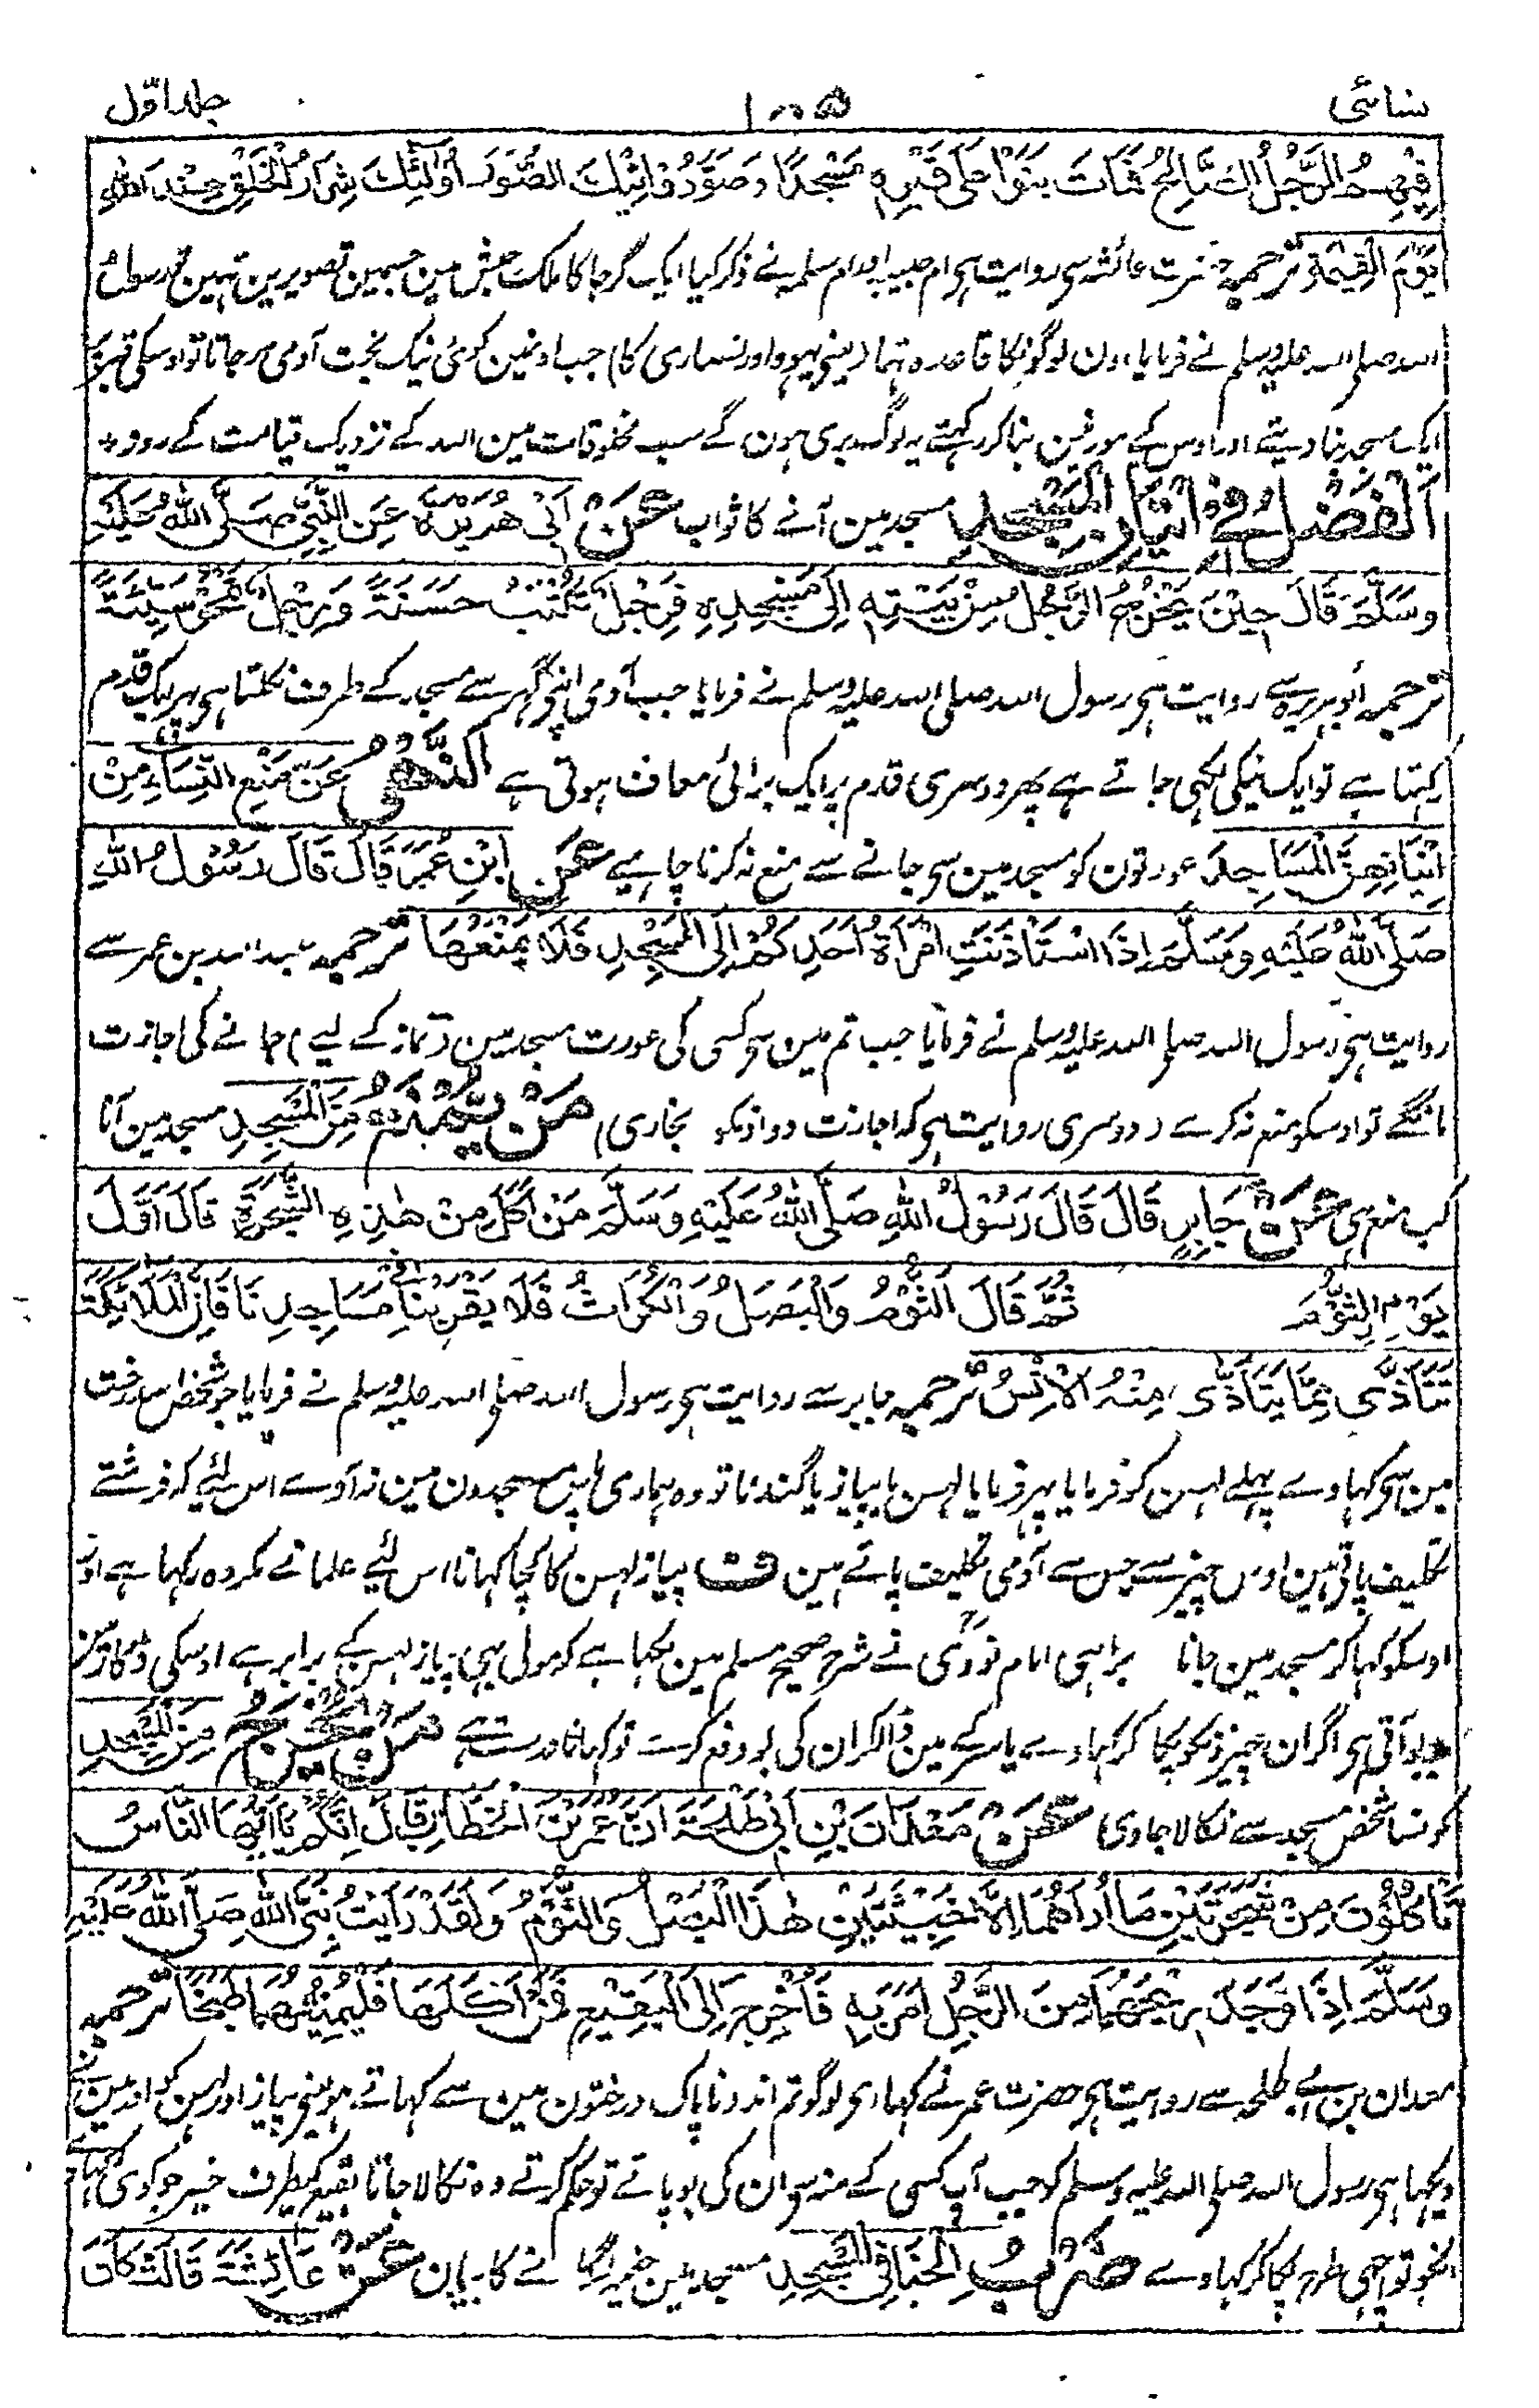 نسائی ۱۰۵ جلد اوّل
فِيْهِمُ الرَّجُلُ الصَّالِحُ فَمَاتَ بَنَوْا عَلٰى قَبْرِهٖ مَسْجِدًا وَصَوَّرُوْا تِيْكَ الصُّوَرَ اُولٰٓئِكَ شِرَارُ الْخَلْقِ عِنْدَ اللّٰهِ
يَوْمَ الْقِيٰمَةِ ترجمہ حضرت عائشہ سی روایت ہی ام حبیبہ اور ام سلمہ نے ذکر کیا ایک گرجا کا ملک حبش مین جسمین تصویرین تہین رسول
اللہ صلی اللہ علیہ وسلم نے فرمایا اون لوگونکا قاعدہ تہا (یعنی یہود اور نصاری کا) جب اونمین کوئی نیک بخت آدمی مرجاتا تو اوسکی قبر پر
ایک مسجد بنا دیتے اور اوس کے مورتین بنا کر رکہتے یہ لوگ بری ہون گے سب مخلوقات مین اللہ کے نزدیک قیامت کے روز ٭
اَلْفَضْلُ فِيْ اِتْيَانِ الْمَسْجِدِ مسجد مین آنے کا ثواب عَنْ اَبِيْ هُرَيْرَةَ عَنِ النَّبِيِّ صَلَّى اللّٰهُ عَلَيْهِ
وَسَلَّمَ قَالَ حِيْنَ يَخْرُجُ الرَّجُلُ مِنْ بَيْتِهٖ اِلٰى مَسْجِدِهٖ فَرِجْلٌ تَكْتُبُ حَسَنَةً وَرِجْلٌ تَمْحُوْ سَيِّئَةً
ترجمہ ابو ہریرہ سے روایت ہی رسول اللہ صلی اللہ علیہ وسلم نے فرمایا جب آدمی اپنی گہر سے مسجد کے طرف نکلتا ہی پہر یک قدم
رکہتا ہے تو ایک نیکی لکہی جاتے ہے پھر دوسری قدم پر ایک برائی معاف ہوتی ہے اَلنَّهْيُ عَنْ مَنْعِ النِّسَاءِ مِنْ
اِتْيَانِهِنَّ الْمَسَاجِدَ عورتون کو مسجد مین سی جانے سے منع نہ کرنا چاہیے عَنِ ابْنِ عُمَرَ قَالَ قَالَ رَسُوْلُ اللّٰهِ
صَلَّى اللّٰهُ عَلَيْهِ وَسَلَّمَ اِذَا اسْتَاْذَنَتِ امْرَاَةُ اَحَدِكُمْ اِلَى الْمَسْجِدِ فَلَا يَمْنَعْهَا ترجمہ عبد اللہ بن عمر سے
روایت ہی رسول اللہ صلی اللہ علیہ وسلم نے فرمایا جب تم مین سی کسی کی عورت مسجد مین (نماز کے لیے) جانے کی اجازت
مانگے تو اوسکو منع نہ کرے (دوسری روایت ہی کہ اجازت دو اونکو بخاری) مَنْ يُمْنَعُ مِنَ الْمَسْجِدِ مسجد مین آنا
کب منع ہی عَنْ جَابِرٍ قَالَ قَالَ رَسُوْلُ اللّٰهِ صَلَّى اللّٰهُ عَلَيْهِ وَسَلَّمَ مَنْ اَكَلَ مِنْ هٰذِهِ الشَّجَرَةِ قَالَ اَوَّلَ
يَوْمٍ الثُّوْمِ ثُمَّ قَالَ الثُّوْمُ وَالْبَصَلُ وَالْكُرَّاثُ فَلَا يَقْرَبْنَا فِيْ مَسَاجِدِنَا فَاِنَّ الْمَلَائِكَةَ
تَتَاَذّٰى مِمَّا يَتَاَذّٰى مِنْهُ الْاِنْسُ ترجمہ جابر سے روایت ہی رسول اللہ صلی اللہ علیہ وسلم نے فرمایا جو شخص اس درخت
مین سی کہاوے پہلے لہسن کو فرمایا پہر فرمایا لہسن یا پیاز یا گندنا تو وہ ہماری پاس مسجدون مین نہ آوے اس لئے کہ فرشتے
تکلیف پاتی ہین اوس چیز سے جس سے آدمی تکلیف پاتے ہین ف پیاز لہسن کا کچا کہانا اس لئے علما نے مکروہ رکہا ہے اور
اوسکو کہا کر مسجد مین جانا برا ہی امام نووی نے شرح صحیح مسلم مین لکہا ہے کہ مولی بہی پیاز لہسن کے برابر ہے اوسکی ڈکار مین
بدبو آتی ہی اگر ان چیزونکو پکا کر کہاوے یا سرکے مین ڈالکر ان کی بو دفع کرے تو کہانا درست ہے مَنْ يُخْرَجُ مِنَ الْمَسْجِدِ
کونسا شخص مسجد سے نکالا جاوی عَنْ مَعْدَانَ بْنِ اَبِيْ طَلْحَةَ اَنَّ عُمَرَ بْنَ الْخَطَّابِ قَالَ اِنَّكُمْ يَا اَيُّهَا النَّاسُ
تَاْكُلُوْنَ مِنْ شَجَرَتَيْنِ مَا اُرَاهُمَا اِلَّا خَبِيْثَتَيْنِ هٰذَا الْبَصَلُ وَالثُّوْمُ وَلَقَدْ رَاَيْتُ نَبِيَّ اللّٰهِ صَلَّى اللّٰهُ عَلَيْهِ
وَسَلَّمَ اِذَا وَجَدَ رِيْحَهُمَا مِنَ الرَّجُلِ اَمَرَ بِهٖ فَاُخْرِجَ اِلَى الْبَقِيْعِ فَمَنْ اَكَلَهَا فَلْيُمِتْهُمَا طَبْخًا ترجمہ
معدان بن ابے طلحہ سے روایت ہی حضرت عمر نے کہا ای لوگو تم ان دو ناپاک درختون مین سے کہاتے ہو یعنی پیاز اور لہسن کو اور مین نے
دیکہا ہی رسول اللہ صلی اللہ علیہ وسلم کو جب آپ کسی کے منہ سی ان کی بو پاتے تو حکم کرتے وہ نکالا جاتا بقیع کیطرف خیر جو کوئی کہاوے
انکو تو اچہی طرح پکا کر کہاوے ضَرْبُ الْخِبَاءِ فِي الْمَسْجِدِ مسجد مین خیمہ لگانے کا بیان عَنْ عَائِشَةَ قَالَتْ كَانَ